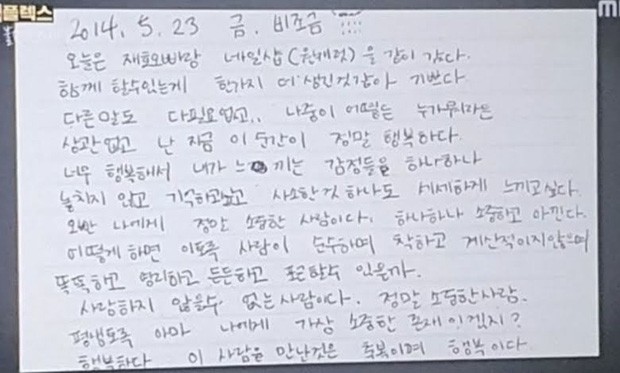 플렉스
2014. 5. 23 금. 비조금
오늘은 재효오빠랑 네일샵 을 같이 갔다.
함께 할수있는게 한가지 더 생긴것같아 기쁘다
다른말도 다필요없고.. 나중이 어떻든 누가뭐라든
상관없고 난 지금 이 순간이 정말 행복하다.
너무 행복해서 내가 느끼는 감정들을 하나하나
놓치지 않고 기억하고싶고 사소한것 하나도 세세하게 느끼고싶다.
오빤 나에게 정말 소중한 사람이다. 하나하나 소중하고 아낀다.
어떻게 하면 이토록 사람이 순수하며 착하고 계산적이지않으며
똑똑하고 영리하고 든든하고 포근할수 있을까.
사랑하지 않을수 없는사람이다. 정말 소중한사람.
평생토록 아마 나에게 가장 소중한 존재이겠지?
행복하다 이 사람을 만난것은 축복이며 행복이다.